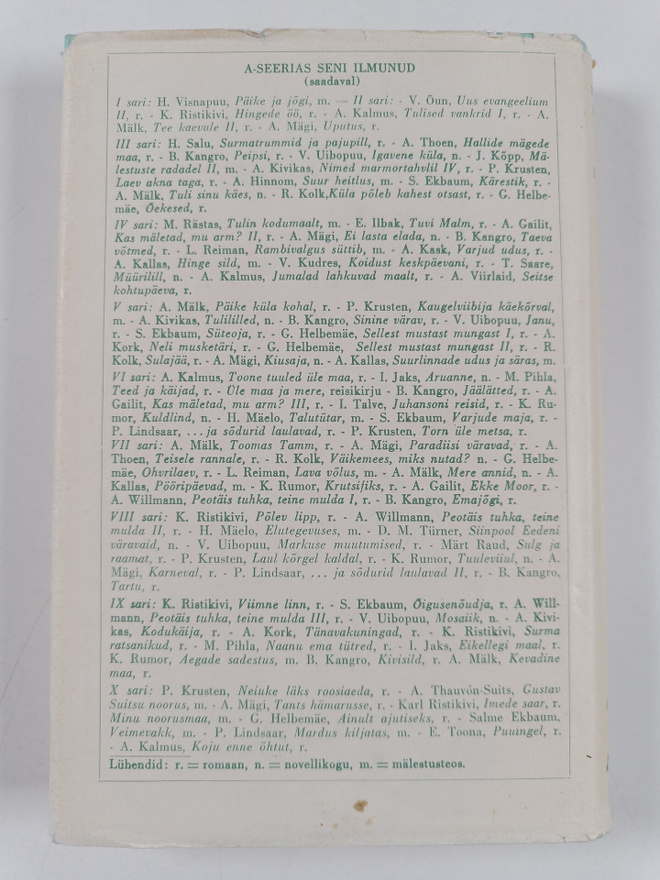 A-SEERIAS SENI ILMUNUD
(saadaval)
I sari: H. Visnapuu, Päike ja jõgi, m. — II sari: - V. Õun, Uus evangeelium
II, r. - K. Ristikivi, Hingede öö, r. - A. Kalmus, Tulised vankrid I, r. - A.
Mälk, Tee kaevule II, r. - A. Mägi, Uputus, r.
III sari: H. Salu, Surmatrummid ja pajupill, r. - A. Thoen, Hallide mägede
maa, r. - B. Kangro, Peipsi, r. - V. Uibopuu, Igavene küla, n. - J. Kõpp, Mä-
lestuste radadel II, m. - A. Kivikas, Nimed marmortahvlil IV, r. - P. Krusten,
Laev akna taga, r. - A. Hinnom, Suur heitlus, m. - S. Ekbaum, Kärestik, r. -
A. Mälk, Tuli sinu käes, n. - R. Kolk,Küla põleb kahest otsast, r. - G. Helbe-
mäe, Õekesed, r.
IV sari: M. Rästas, Tulin kodumaalt, m. - E. Ilbak, Tuvi Malm, r. - A. Gailit,
Kas mäletad, mu arm? II, r. - A. Mägi, Ei lasta elada, n. - B. Kangro, Taeva
võtmed, r. - L. Reiman, Rambivalgus süttib, m. - A. Kask, Varjud udus, r. -
A. Kallas, Hinge sild, m. - V. Kudres, Koidust keskpäevani, r. - T. Saare,
Müürilill, n. - A. Kalmus, Jumalad lahkuvad maalt, r. - A. Viirlaid, Seitse
kohtupäeva, r.
V sari: A. Mälk, Päike küla kohal, r. - P. Krusten, Kaugelviibija käekõrval,
m. - A. Kivikas, Tulililled, n. - B. Kangro, Sinine värav, r. - V. Uibopuu, Janu,
r. - S. Ekbaum, Süteoja, r. - G. Helbemäe, Sellest mustast mungast I, r. - A.
Kork, Neli musketäri, r. - G. Helbemäe, Sellest mustast mungast II, r. - R.
Kolk, Sulajää, r. - A. Mägi, Kiusaja, n. - A. Kallas, Suurlinnade udus ja säras, m.
VI sari: A. Kalmus, Toone tuuled üle maa, r. - I. Jaks, Aruanne, n. - M. Pihla,
Teed ja käijad, r. - Üle maa ja mere, reisikirju - B. Kangro, Jäälätted, r. - A.
Gailit, Kas mäletad, mu arm? III, r. - I. Talve, Juhansoni reisid, r. - K. Ru-
mor, Kuldlind, n. - H. Mäelo, Talutütar, m. - S. Ekbaum, Varjude maja, r. -
P. Lindsaar, ... ja sõdurid laulavad, r. - P. Krusten, Torn üle metsa, r.
VII sari: A. Mälk, Toomas Tamm, r. - A. Mägi, Paradiisi väravad, r. - A.
Thoen, Teisele rannale, r. - R. Kolk, Väikemees, miks nutad? n. - G. Helbe-
mäe, Ohvrilaev, r. - L. Reiman, Lava võlus, m. - A. Mälk, Mere annid, n. - A.
Kallas, Pööripäevad, m. - K. Rumor, Krutsifiks, r. - A. Gailit, Ekke Moor, r. -
A. Willmann, Peotäis tuhka, teine mulda I, r. - B. Kangro, Emajõgi, r.
VIII sari: K. Ristikivi, Põlev lipp, r. - A. Willmann, Peotäis tuhka, teine
mulda II, r. - H. Mäelo, Elutegevuses, m. - D. M. Türner, Siinpool Eedeni
väravaid, n. - V. Uibopuu, Markuse muutumised, r. - Märt Raud, Sulg ja
raamat, r. - P. Krusten, Laul kõrgel kaldal, r. - K. Rumor, Tuuleviiul, n. - A.
Mägi, Karneval, r. - P. Lindsaar, ... ja sõdurid laulavad II, r. - B. Kangro,
Tartu, r.
IX sari: K. Ristikivi, Viimne linn, r. - S. Ekbaum, Õigusenõudja, r. A. Will-
mann, Peotäis tuhka, teine mulda III, r. - V. Uibopuu, Mosaiik, n. - A. Kivi-
kas, Kodukäija, r. - A. Kork, Tänavakuningad, r. - K. Ristikivi, Surma
ratsanikud, r. - M. Pihla, Naanu ema tütred, r. - I. Jaks, Eikellegi maal, r.
K. Rumor, Aegade sadestus, m. B. Kangro, Kivisild, r. A. Mälk, Kevadine
maa, r.
X sari: P. Krusten, Neiuke läks roosiaeda, r. - A. Thauvón-Suits, Gustav
Suitsu noorus, m. - A. Mägi, Tants hämarusse, r. - Karl Ristikivi, Imede saar, r.
Minu noorusmaa, m. - G. Helbemäe, Ainult ajutiseks, r. - Salme Ekbaum,
Veimevakk, m. - P. Lindsaar, Mardus kiljatas, m. - E. Toona, Puuingel, r.
- A. Kalmus, Koju enne õhtut, r.
Lühendid: r. = romaan, n. = novellikogu, m. = mälestusteos.